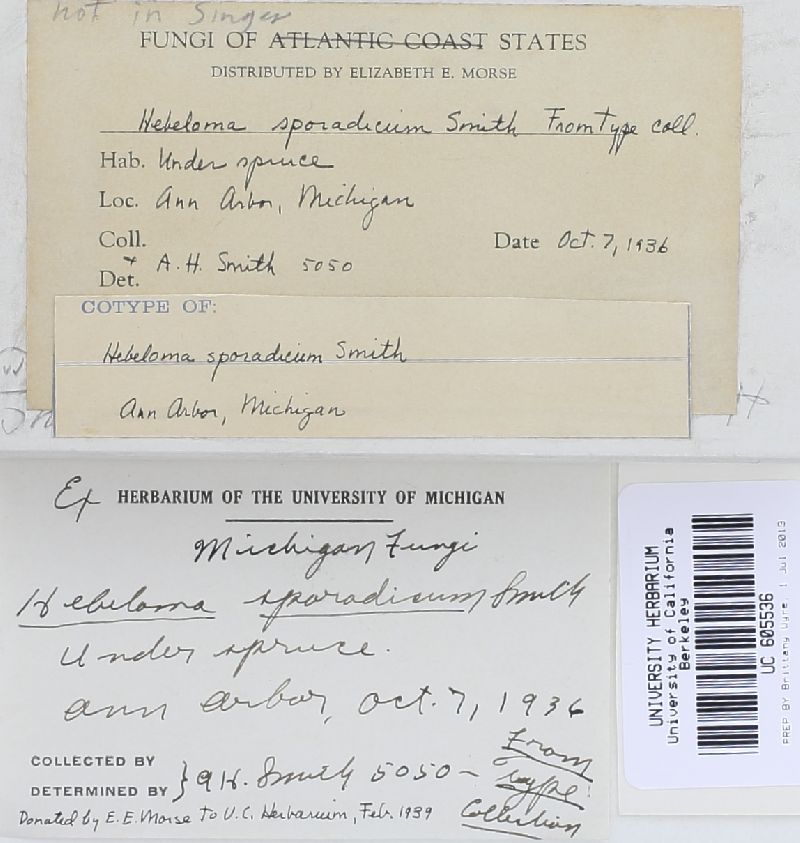 not in Singer
FUNGI OF ATLANTIC COAST STATES
DISTRIBUTED BY ELIZABETH E. MORSE
Hebeloma sporadicum Smith From Type coll.
Hab. Under spruce
Loc. Ann Arbor, Michigan
Coll.
Date Oct. 7, 1936
+ A. H. Smith 5050
Det.
COTYPE OF:
Hebeloma sporadicum Smith
Ann Arbor, Michigan
Ex HERBARIUM OF THE UNIVERSITY OF MICHIGAN
Michigan Fungi
Hebeloma sporadicum Smith
Under spruce.
Ann Arbor, Oct. 7, 1936
COLLECTED BY
DETERMINED BY } A H. Smith 5050 – From Type Collection
Donated by E. E. Morse to U.C. Herbarium, Feb. 1939
UNIVERSITY HERBARIUM
University of California
Berkeley
UC 605536
PREP BY Brittany Uyre, 1 Jul 2013